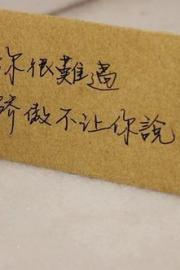 你很難過
骄傲不让你說